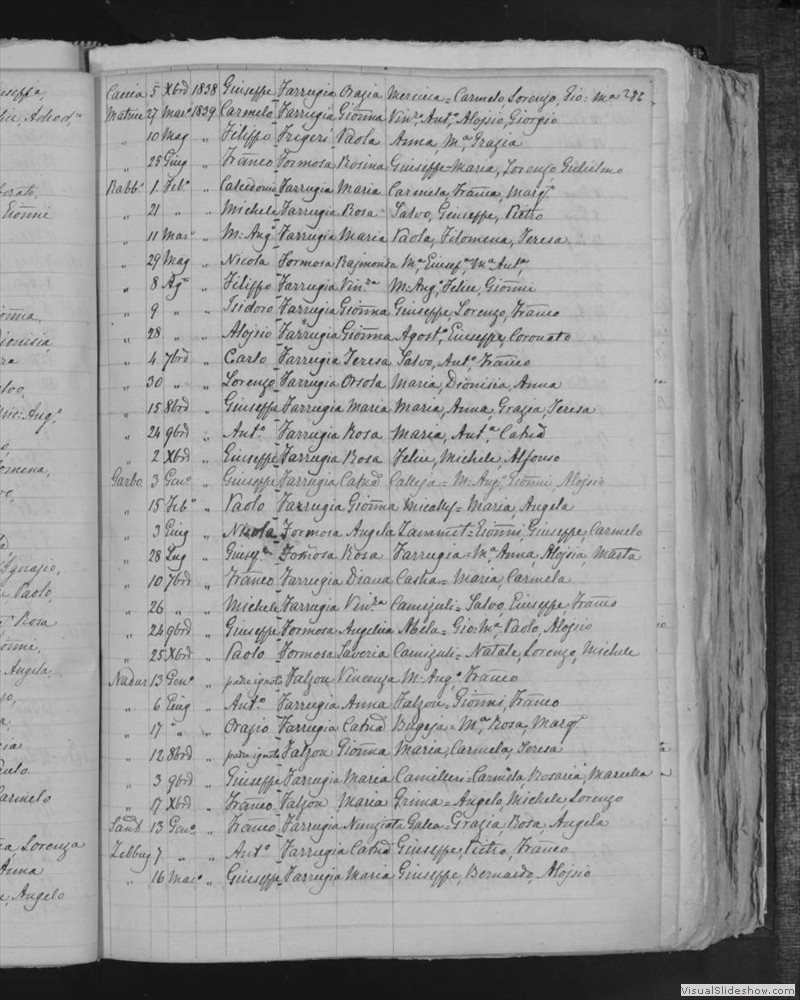 Caccia 5 Xbrd 1838 Giuseppe Farrugia Orazia Mercieca = Carmelo, Lorenzo, Gio: Mª 282
Matrice 27 Marº 1839 Carmelo Farrugia Giõnna Vinª, Antº, Aloisio, Giorgio
" 10 Mag " Filippo Fregeri Paola Anna, Mª Grazia
" 25 Giug " Franco Formosa Rosina Giuseppe-Maria, Lorenzo, Guilielmo
Rabbº 1 Febº " Calcedonio Farrugia Maria Carmela, Franca, Margª
" 21 " " Michele Farrugia Rosa Salvo, Giuseppe, Pietro
" 11 Marº " M: Angº Farrugia Maria Paola, Filomena, Teresa
" 29 Mag " Nicola Formosa Rajmonda Mª Giusefª, Mª Antª
" 8 Agº " Filippo Farrugia Vinzª M: Angº, Felice, Giõnni
" 9 " " Isidoro Farrugia Giõnna Giuseppe, Lorenzo, Franco
" 28 " " Aloisio Farrugia Giõnna Agostº, Giuseppe, Coronato
" 4 7brd " Carlo Farrugia Teresa Salvo, Antº, Franco
" 30 " " Lorenzo Farrugia Orsola Maria, Dionisia, Anna
" 15 8brd " Giuseppe Farrugia Maria Maria, Anna, Grazia, Teresa
" 24 9brd " Antº Farrugia Rosa Maria, Antª, Catnd
" 2 Xbrd " Giuseppe Farrugia Rosa Felice, Michele, Alfonso
Garbo 3 Genº " Giuseppe Farrugia Catnd Calleja = M: Angº, Giõnni, Aloisio
" 15 Febº " Paolo Farrugia Giõnna Micallef = Maria, Angela
" 3 Giug " Nicola Formosa Angela Zammit = Giõnni, Giuseppe, Carmelo
" 28 Lug " Giusepª Formosa Rosa Farrugia = Mª Anna, Aloisia, Marta
" 10 7brd " Franco Farrugia Diana Casha = Maria, Carmela
" 26 " " Michele Farrugia Vinzª Camizuli = Salvo, Giuseppe, Franco
" 24 9brd " Giuseppe Formosa Angelica Abela = Gio: Mª, Paolo, Aloisio
" 25 Xbrd " Paolo Formosa Saveria Camizuli = Natale, Lorenzo, Michele
Nadur 13 Genº " padre ignoto Falzon Vincenza M: Angº, Franco
" 6 Giug " Antº Farrugia Anna Falzon, Giõnni, Franco
" 17 " " Orazio Farrugia Catnd Bugeja = Mª Rosa, Margª
" 12 8brd " padre ignoto Falzon Giõnna Maria, Carmela, Teresa
" 3 9brd " Giuseppe Farrugia Maria Camilleri = Carmela, Rosaria, Marcella
" 17 Xbrd " Franco Falzon Maria Grima = Angelo, Michele, Lorenzo
Sand 13 Genº " Franco Farrugia Nunziata Galea = Grazia Rosa, Angela
Zebbug 7 " " Antº Farrugia Catnd Giuseppe, Pietro, Franco
" 16 Marº " Giuseppe Farrugia Maria Giuseppe, Bernardo, Aloisio
VisualSlideshow.com